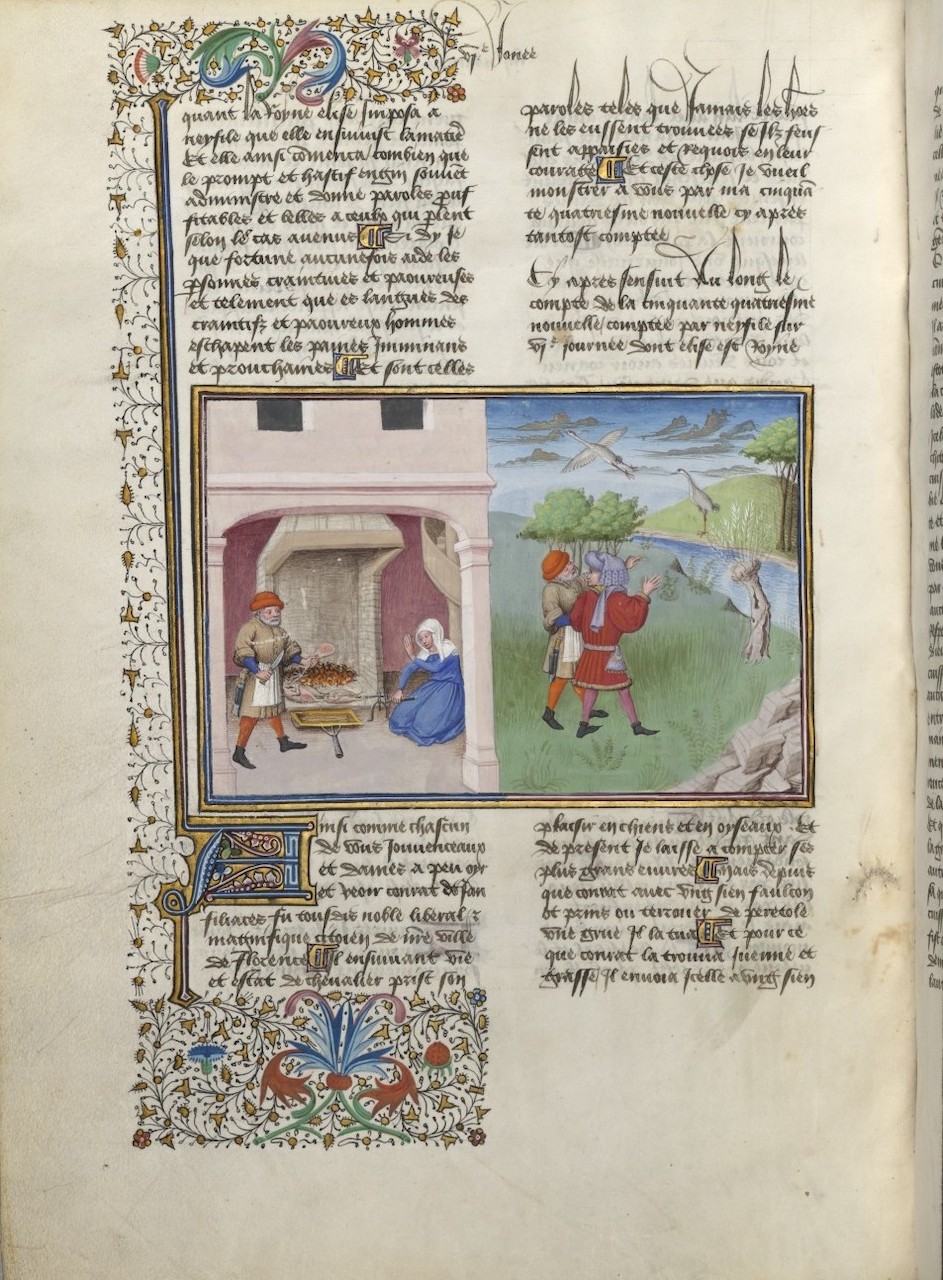 vj.e Janee
quant la Royne elise Imposa a
neyfile que elle ensuiuist lamatie
Et elle ainsi cōmenca combien que
le prompt et hastif engin souuet
administre et donne paroles pruf
fitables et belles a ceulx qui plent
selon le cas auenus Et dy Je
que fortune aucunefois aide les
psonnes craintiues et paoureuses
et telement que es langues des
craintifz et paoureux hommes
eschapent les paines Iminnans
et prouchaines Et sont celles
paroles teles que Jamais les hōes
ne les eussent trouuees se Ilz feus
sent appaisies et requois en leur
courage Et ceste chose Je vueil
monstrer a vous par ma cinquā
te quatriesme nouuelle cy apres
tantost comptee
Cy apres sensuit Au long le
compte de la cinquante quatriesme
nouuelle comptee par neyfile sur
vj.e journee dont elise est Royne
Ainsi comme chascun
de vous Jouuenceaux
et dames a peu oyr
et veoir conrat de Jan
filiaces fu tousdis noble liberal z
magnifique citoien de nre ville
de florence Il ensuiuant vie
et estat de cheualier prist son
plaisir en chiens et en oyseaux. Et
de present Je laisse a compter ses
plus grans euures Mais depuis
que conrat auec vng sien faulcon
ot prins ou terrouer de peretole
vne grue Il la tua Et pour ce
que conrat la trouua Juenne et
grasse Il enuoia Icelle a vng sien